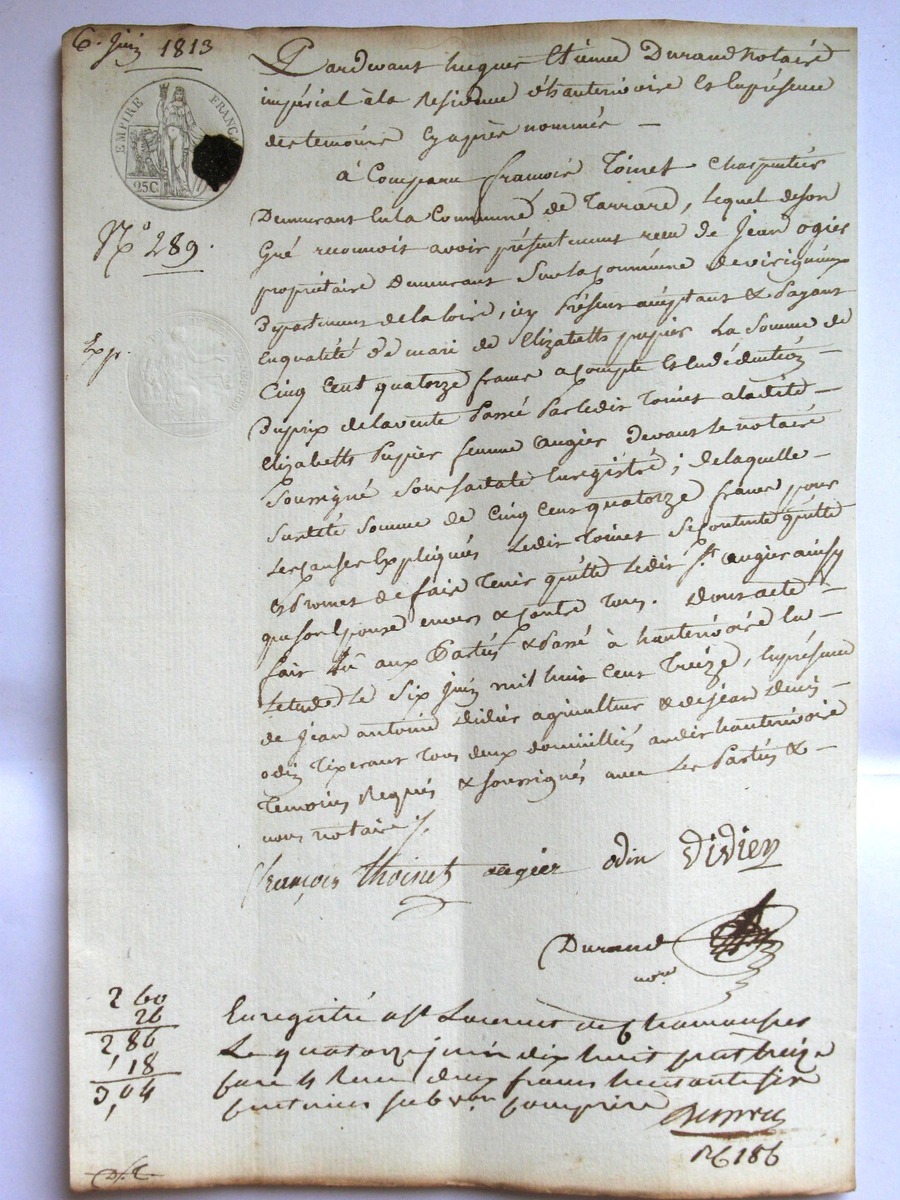 6. Juin 1813
EMPIRE FRANÇAIS
25C
N° 289.
Exp.
Pardevant hugues Etienne Durand Notaire
impérial à la Residence d'hauterivoire Et Enprésence
des temoins Cy après nommés —
à Comparu françois Toinet Charpentier
Demeurant En la Commune de Tarrare, lequel deson
Gré reconnoit avoir présentement recu de Jean ogier
propriétaire Demeurant Sur la Commune de virigneux
Département de la loire, icy Présent acceptant & Payant
En qualité de mari de Elizabeth pupier La Somme de
Cinq Cent quatorze francs a compte Et En déduction —
Du prix de la vente Passé Par ledit Toinet a ladite —
Elizabeth Pupier femme augier Devant le notaire
Soussigné Enregistré ; de laquelle —
Susdite Somme de Cinq Cent quatorze francs pour
Les Causes Expliqués Ledit Toinet Se Contente quitte
Et Promet de faire Tenir quitte Ledit Sr. augier ainsy
que son Epouse envers & Contre Tous. Dont acte —
fait Lu aux Parties & Passé à hauterivoire En
Letude Le Six Juin mil huit Cent Treize, Enprésence
de Jean antoine Didier agriculteur & de Jean Denis —
odin Tixerant Tous deux domicilliés audit hauterivoire
Temoins Requis & Soussignés avec Les Parties & —
nous notaire
françois thoinet augier odin Didier
Durand
nore
2 60
26
2,86
,18
3,04
Enregistré a St Laurent de Chamousset
Le quatorze juin dix huit cent treize
deux francs huitante six
centimes subvon comprise
R6186